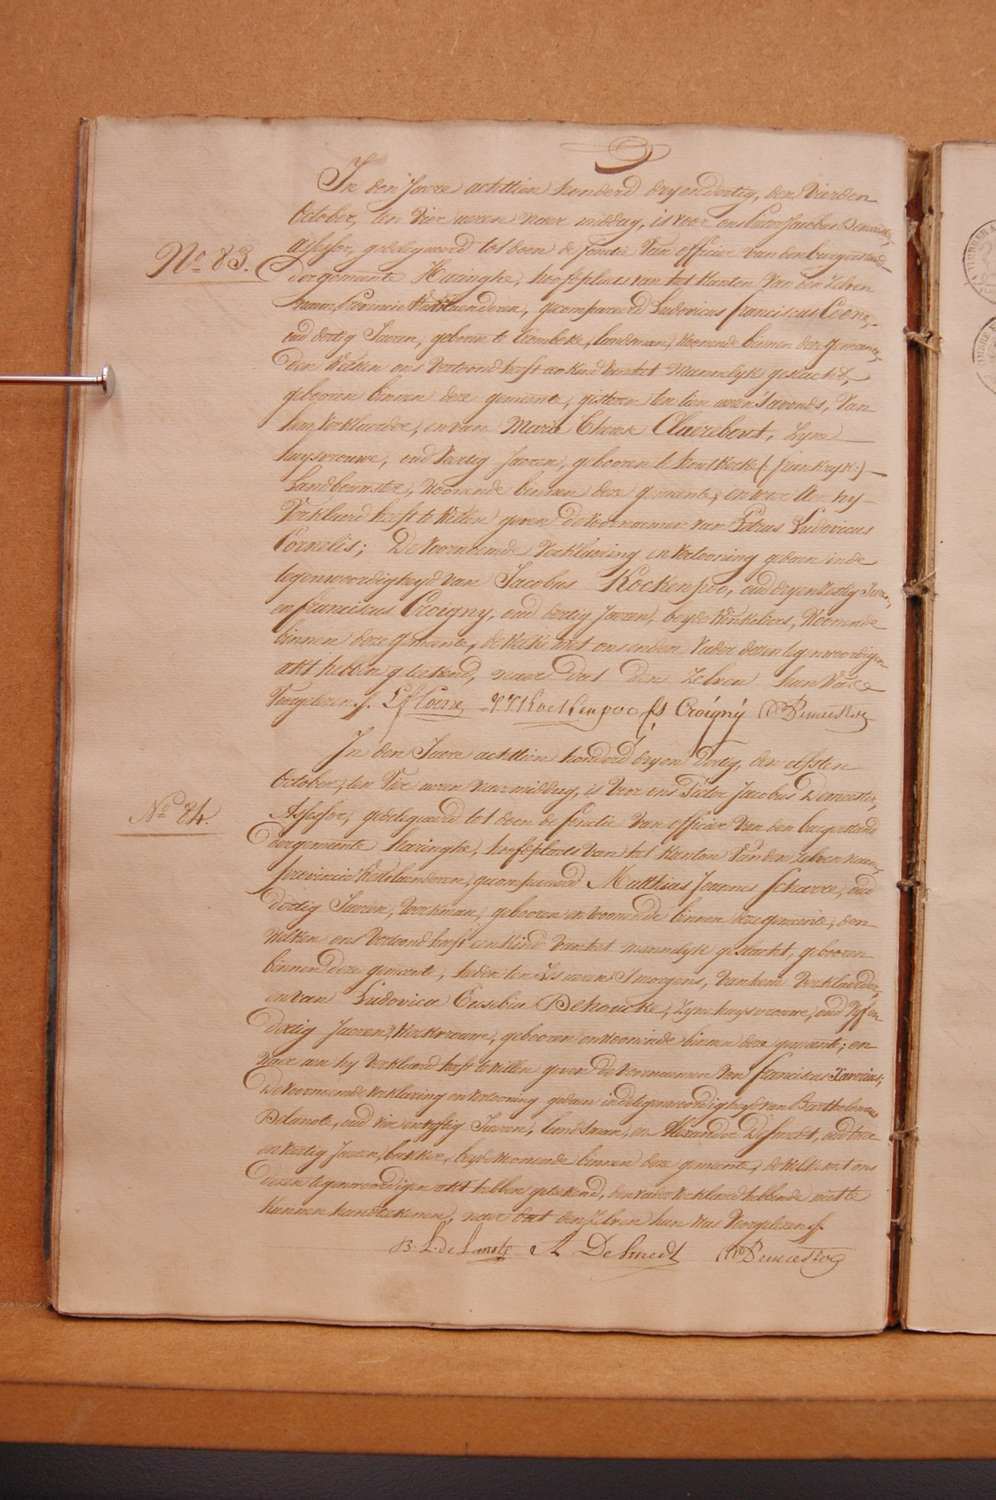 In den Jaere achttien honderd dry en dertig, den vierden
October, ten vier uren naer middag, is voor ons Pieter Jacobus Demeester,
assessor, gedelegueerd tot doen de functie van officier van den burgerstand
N.o 83.
der gemeente Haringhe, hoofdplaets van het kanton van den zelven
naem, Provincie Westvlaenderen, gecompareerd Ludovicus Franciscus Coene,
oud dertig Jaeren, geboren te Lombeke, landsman, woonende binnen deze gemeente,
den welken ons vertoond heeft een kind van het mannelyk geslacht,
geboren binnen deze gemeente, gisteren ten tien uren 's avonds, van
hem verklaerder, en van Marie Therese Claerebout, zyne
huysvrouwe, oud veertig Jaeren, geboren te (Frankryk)
Landbouwster, woonende binnen deze gemeente, en waer aen hy
verklaerd heeft te willen geven de voornaemen van Petrus Ludovicus
Cornelis; De voornoemde verklaering en vertooning gedaen in de
tegenwoordigheyd van Jacobus Kockenpoo, oud dry en Jaeren,
en Franciscus Croigny, oud dertig Jaeren, beyde Winkeliers, woonende
binnen deze gemeente, de welke met ons en den vader dezen tegenwoordigen
akt hebben geteekend, naer dat den zelven hun was
voorgelezen. L F Coene Kockenpoo fs Croigny PJ Demeester
In den Jaere achttien honderd dry en dertig, den elfsten
October, ten vier uren naermiddag, is voor ons Pieter Jacobus Demeester,
N.o 84.
Assessor, gedelegueerd tot doen de functie van officier van den burgerstand
der gemeente Haringhe, hoofdplaets van het kanton van den zelven naem,
provincie Westvlaenderen, gecompareerd Matthias Joannes Scharre, oud
dertig Jaeren, werkman, geboren en woonende binnen deze gemeente, den
welken ons vertoond heeft een kind van het mannelyk geslacht, geboren
binnen deze gemeente, heden ten uren 's morgens, van hem verklaerder,
en van Ludovica Eusebia Dehoucke, zyne huysvrouwe, oud vyf en
dertig Jaeren, werkvrouwe, geboren en woonende binnen deze gemeente; en
waer aen hy verklaerd heeft te willen geven de voornaemen van Franciscus Xavirius;
de voornoemde verklaering en vertooning gedaen in de tegenwoordigheyd van Bartholomeus
Delanote, oud vier en vyftig Jaeren, landsman, en Alexander Desmedt, oud twee
en veertig Jaeren, bakker, beyde woonende binnen deze gemeente, de welke met ons
dezen tegenwoordigen akt hebben geteekend, den vader verklaerd hebbende niet te
kunnen handteekenen, naer dat den zelven hun was voorgelezen.
B. L. de Lanote A De Smedt PJ Demeester